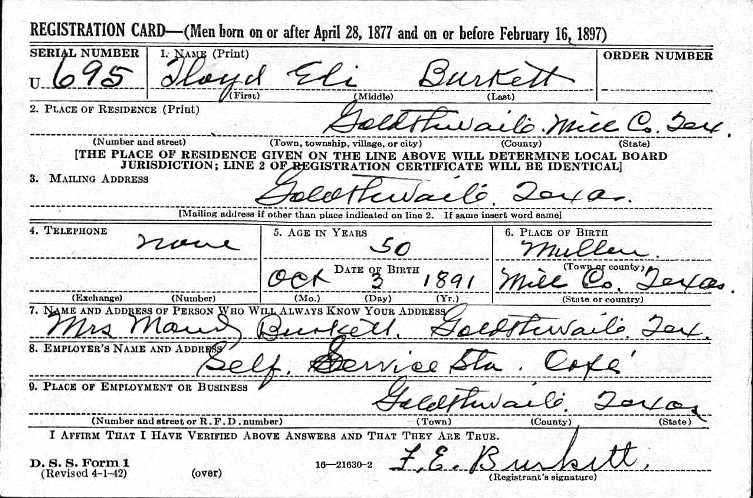 REGISTRATION CARD—(Men born on or after April 28, 1877 and on or before February 16, 1897)
SERIAL NUMBER 1. NAME (Print) ORDER NUMBER
U 695 Floyd Eli Burkett
(First) (Middle) (Last)
2. PLACE OF RESIDENCE (Print)
Goldthwaite. Mill Co. Tex.
(Number and street) (Town, township, village, or city) (County) (State)
[THE PLACE OF RESIDENCE GIVEN ON THE LINE ABOVE WILL DETERMINE LOCAL BOARD
JURISDICTION; LINE 2 OF REGISTRATION CERTIFICATE WILL BE IDENTICAL]
3. MAILING ADDRESS
Goldthwaite. Texas.
[Mailing address if other than place indicated on line 2. If same insert word same]
4. TELEPHONE 5. AGE IN YEARS 6. PLACE OF BIRTH
none 50 Mullen
DATE OF BIRTH (Town or county)
Oct 3 1891 Mill Co. Texas.
(Exchange) (Number) (Mo.) (Day) (Yr.) (State or country)
7. NAME AND ADDRESS OF PERSON WHO WILL ALWAYS KNOW YOUR ADDRESS
Mrs Maud Burkett. Goldthwaite. Tex.
8. EMPLOYER'S NAME AND ADDRESS
Self. Service Sta. Cafe
9. PLACE OF EMPLOYMENT OR BUSINESS
Goldthwaite. Texas
(Number and street or R. F. D. number) (Town) (County) (State)
I AFFIRM THAT I HAVE VERIFIED ABOVE ANSWERS AND THAT THEY ARE TRUE.
D. S. S. Form 1
(Revised 4-1-42) (over) 16—21630-2 F. E. Burkett.
(Registrant's signature)